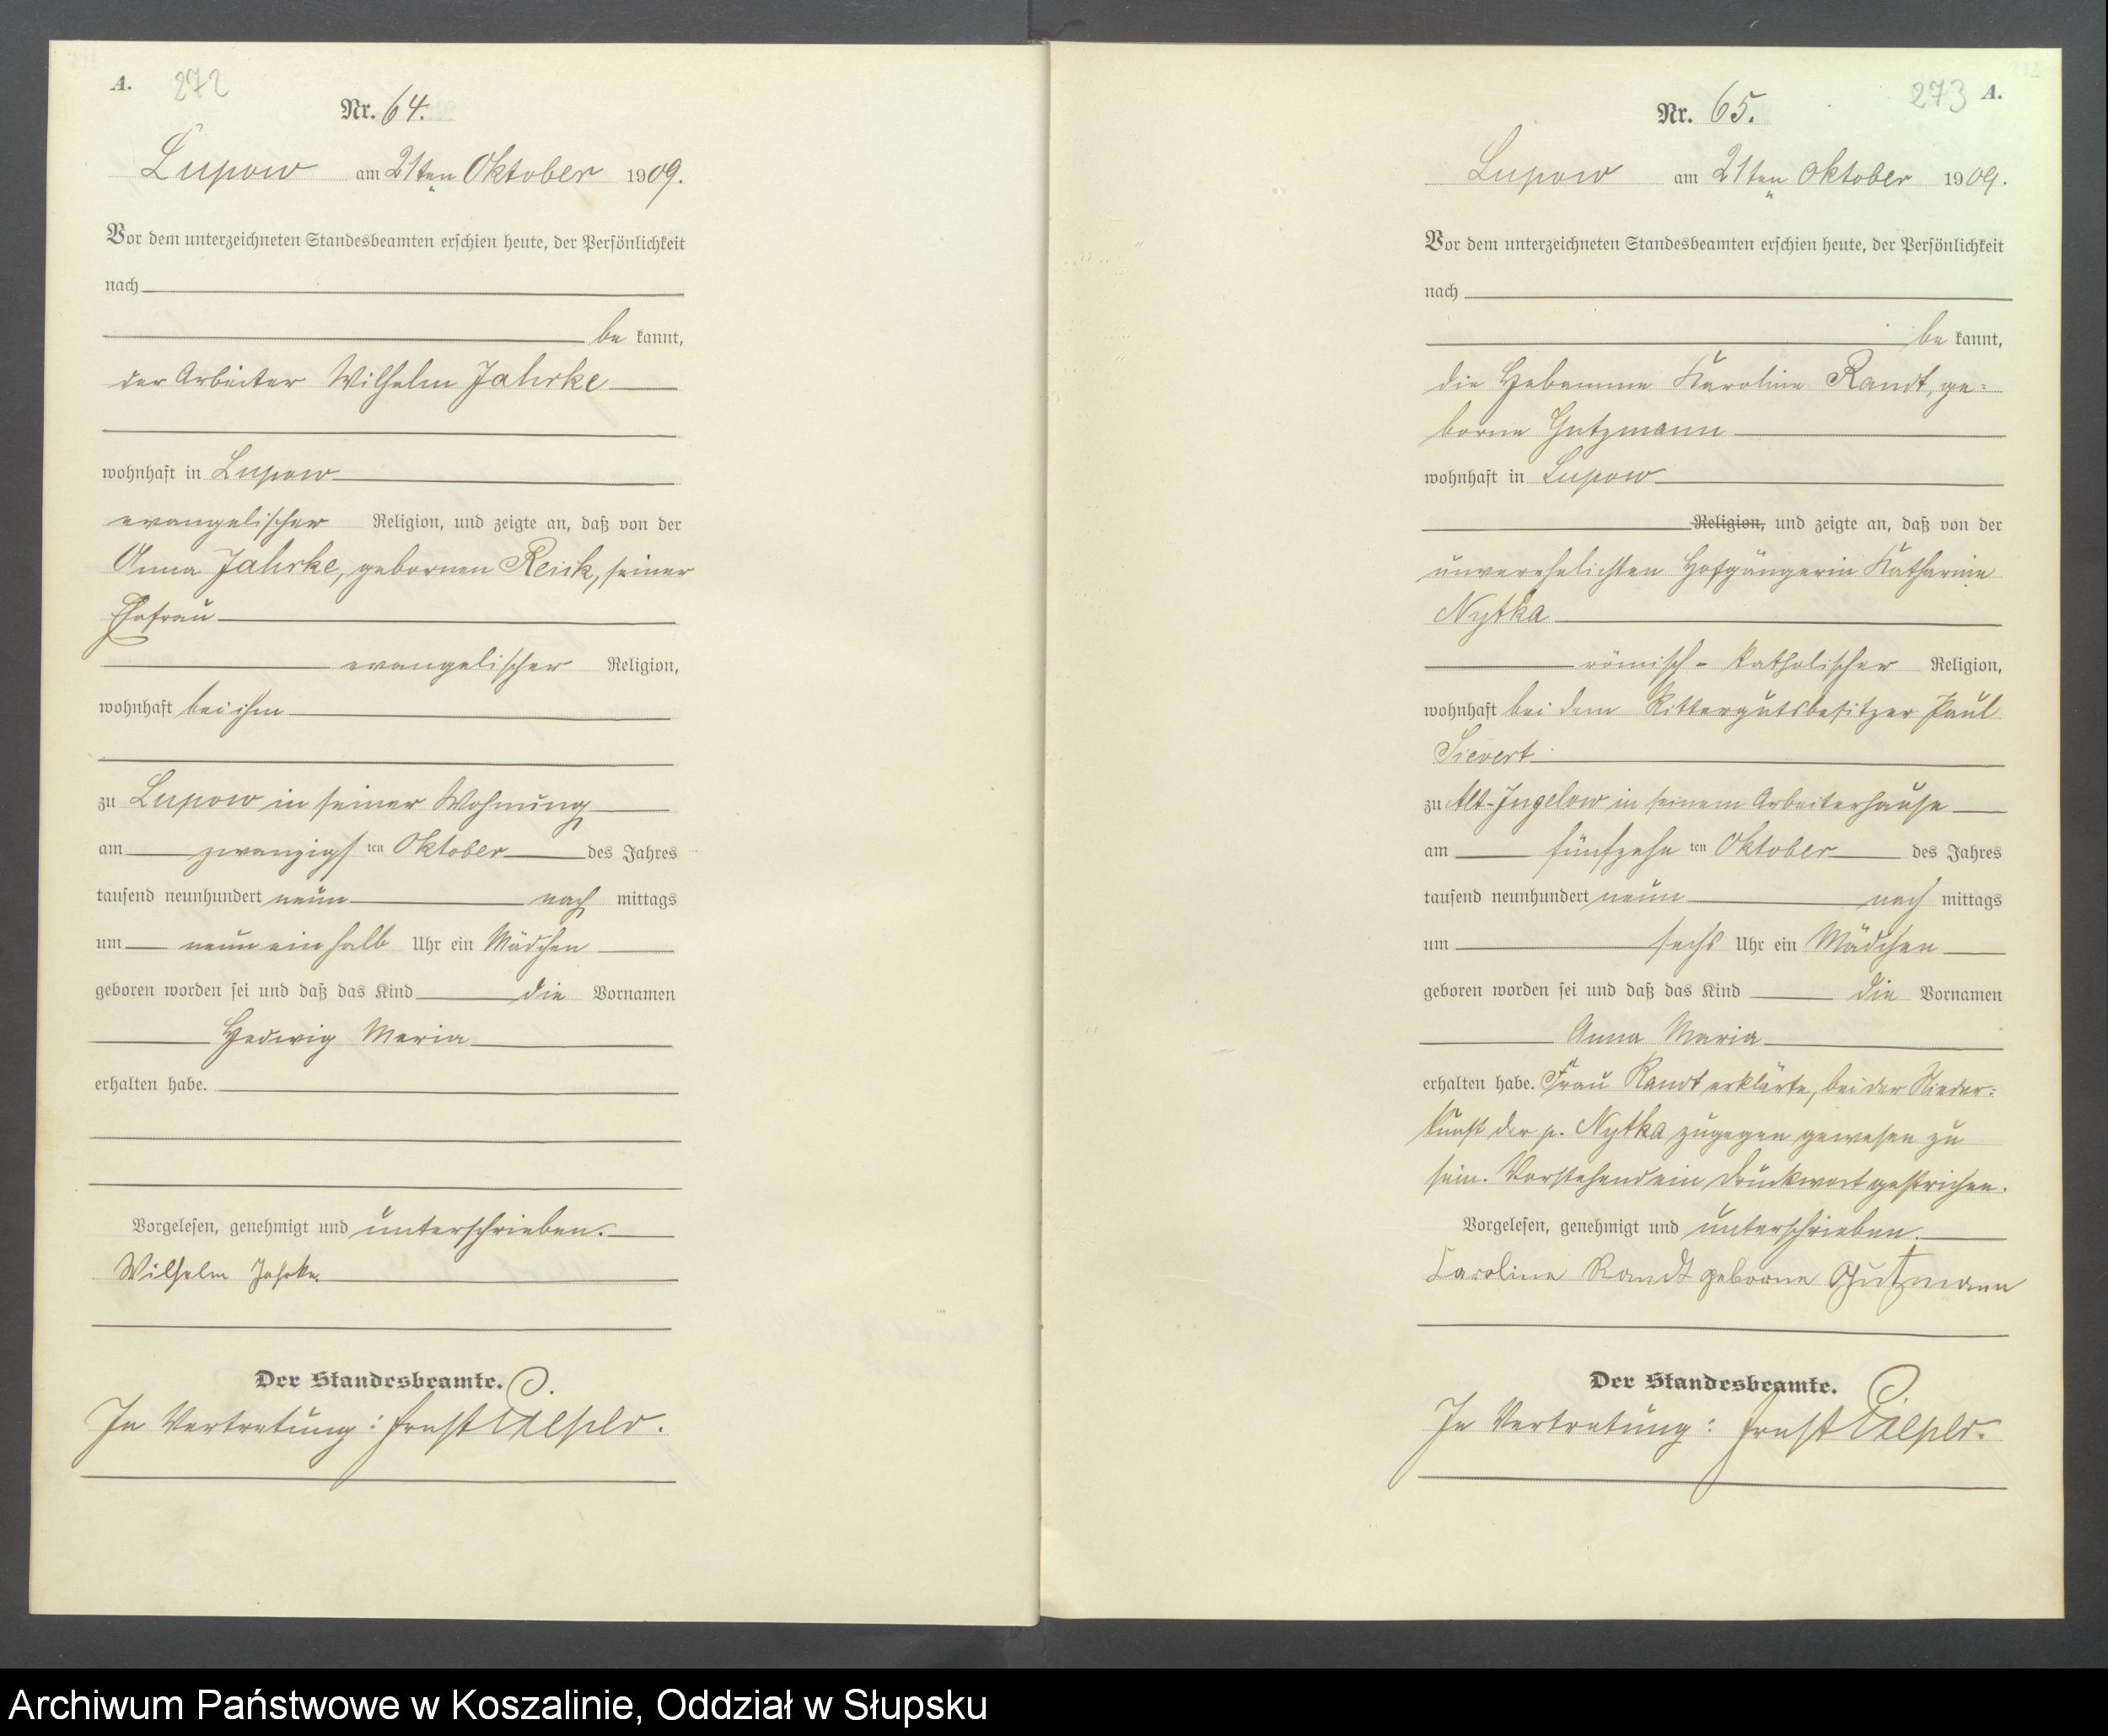 A.
272
Nr. 64.
Lupow am 21ten Oktober 1909.
Vor dem unterzeichneten Standesbeamten erschien heute, der Persönlichkeit
nach
be kannt,
der Arbeiter Wilhelm Jahrke
wohnhaft in Lupow
evangelischer Religion, und zeigte an, daß von der
Anna Jahrke, gebornen Reick, seiner
Ehefrau
evangelischer Religion,
wohnhaft bei ihm
zu Lupow in seiner Wohnung
am zwanzigsten Oktober des Jahres
tausend neunhundert neun nach mittags
um neun ein halb Uhr ein Mädchen
geboren worden sei und daß das Kind die Vornamen
Hedwig Maria
erhalten habe.
Vorgelesen, genehmigt und unterschrieben.
Wilhelm Jahrke.
Der Standesbeamte.
In Vertretung: Ernst
273 A.
Nr. 65.
Lupow am 21ten Oktober 1909.
Vor dem unterzeichneten Standesbeamten erschien heute, der Persönlichkeit
nach
be kannt,
die Hebamme Karoline Randt, ge-
borne Gutzmann
wohnhaft in Lupow
Religion, und zeigte an, daß von der
unverehelichten Hofgängerin Katharina
Nytka
römisch-katholischer Religion,
wohnhaft bei dem Rittergutsbesitzer Paul
Sievert
zu Alt-Jugelow in seinem Arbeiterhause
am fünfzehnten Oktober des Jahres
tausend neunhundert neun nach mittags
um sechs Uhr ein Mädchen
geboren worden sei und daß das Kind die Vornamen
Anna Maria
erhalten habe. Frau Randt erklärte, bei der Nieder-
kunft der p. Nytka zugegen gewesen zu
sein. Vorstehend ein Druckwort gestrichen.
Vorgelesen, genehmigt und unterschrieben.
Caroline Randt geborne Gutzmann
Der Standesbeamte.
In Vertretung: Ernst
Archiwum Państwowe w Koszalinie, Oddział w Słupsku